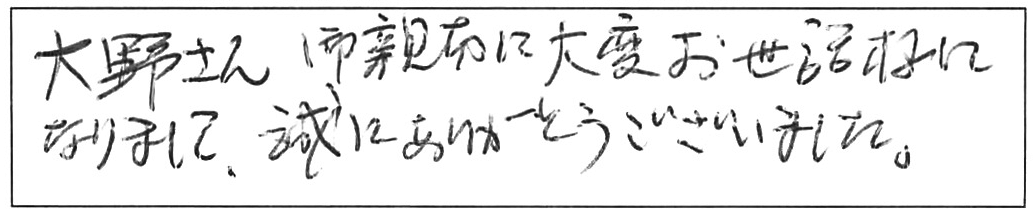 大野さん御親切に大変お世話様に
なりまして、誠にありがとうございました。